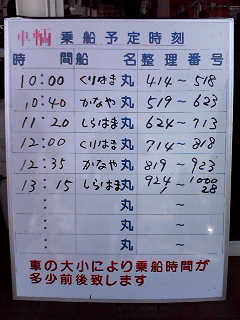 車輌 乗船予定時刻
時 間 船 名 整理番号
10:00 くりはま丸 414～518
10:40 かなや丸 519～623
11:20 しらはま丸 624～713
12:00 くりはま丸 714～818
12:35 かなや丸 819～923
13:15 しらはま丸 924～1000
1 28
: 丸 ～
: 丸 ～
: 丸 ～
車の大小により乗船時間が
多少前後致します